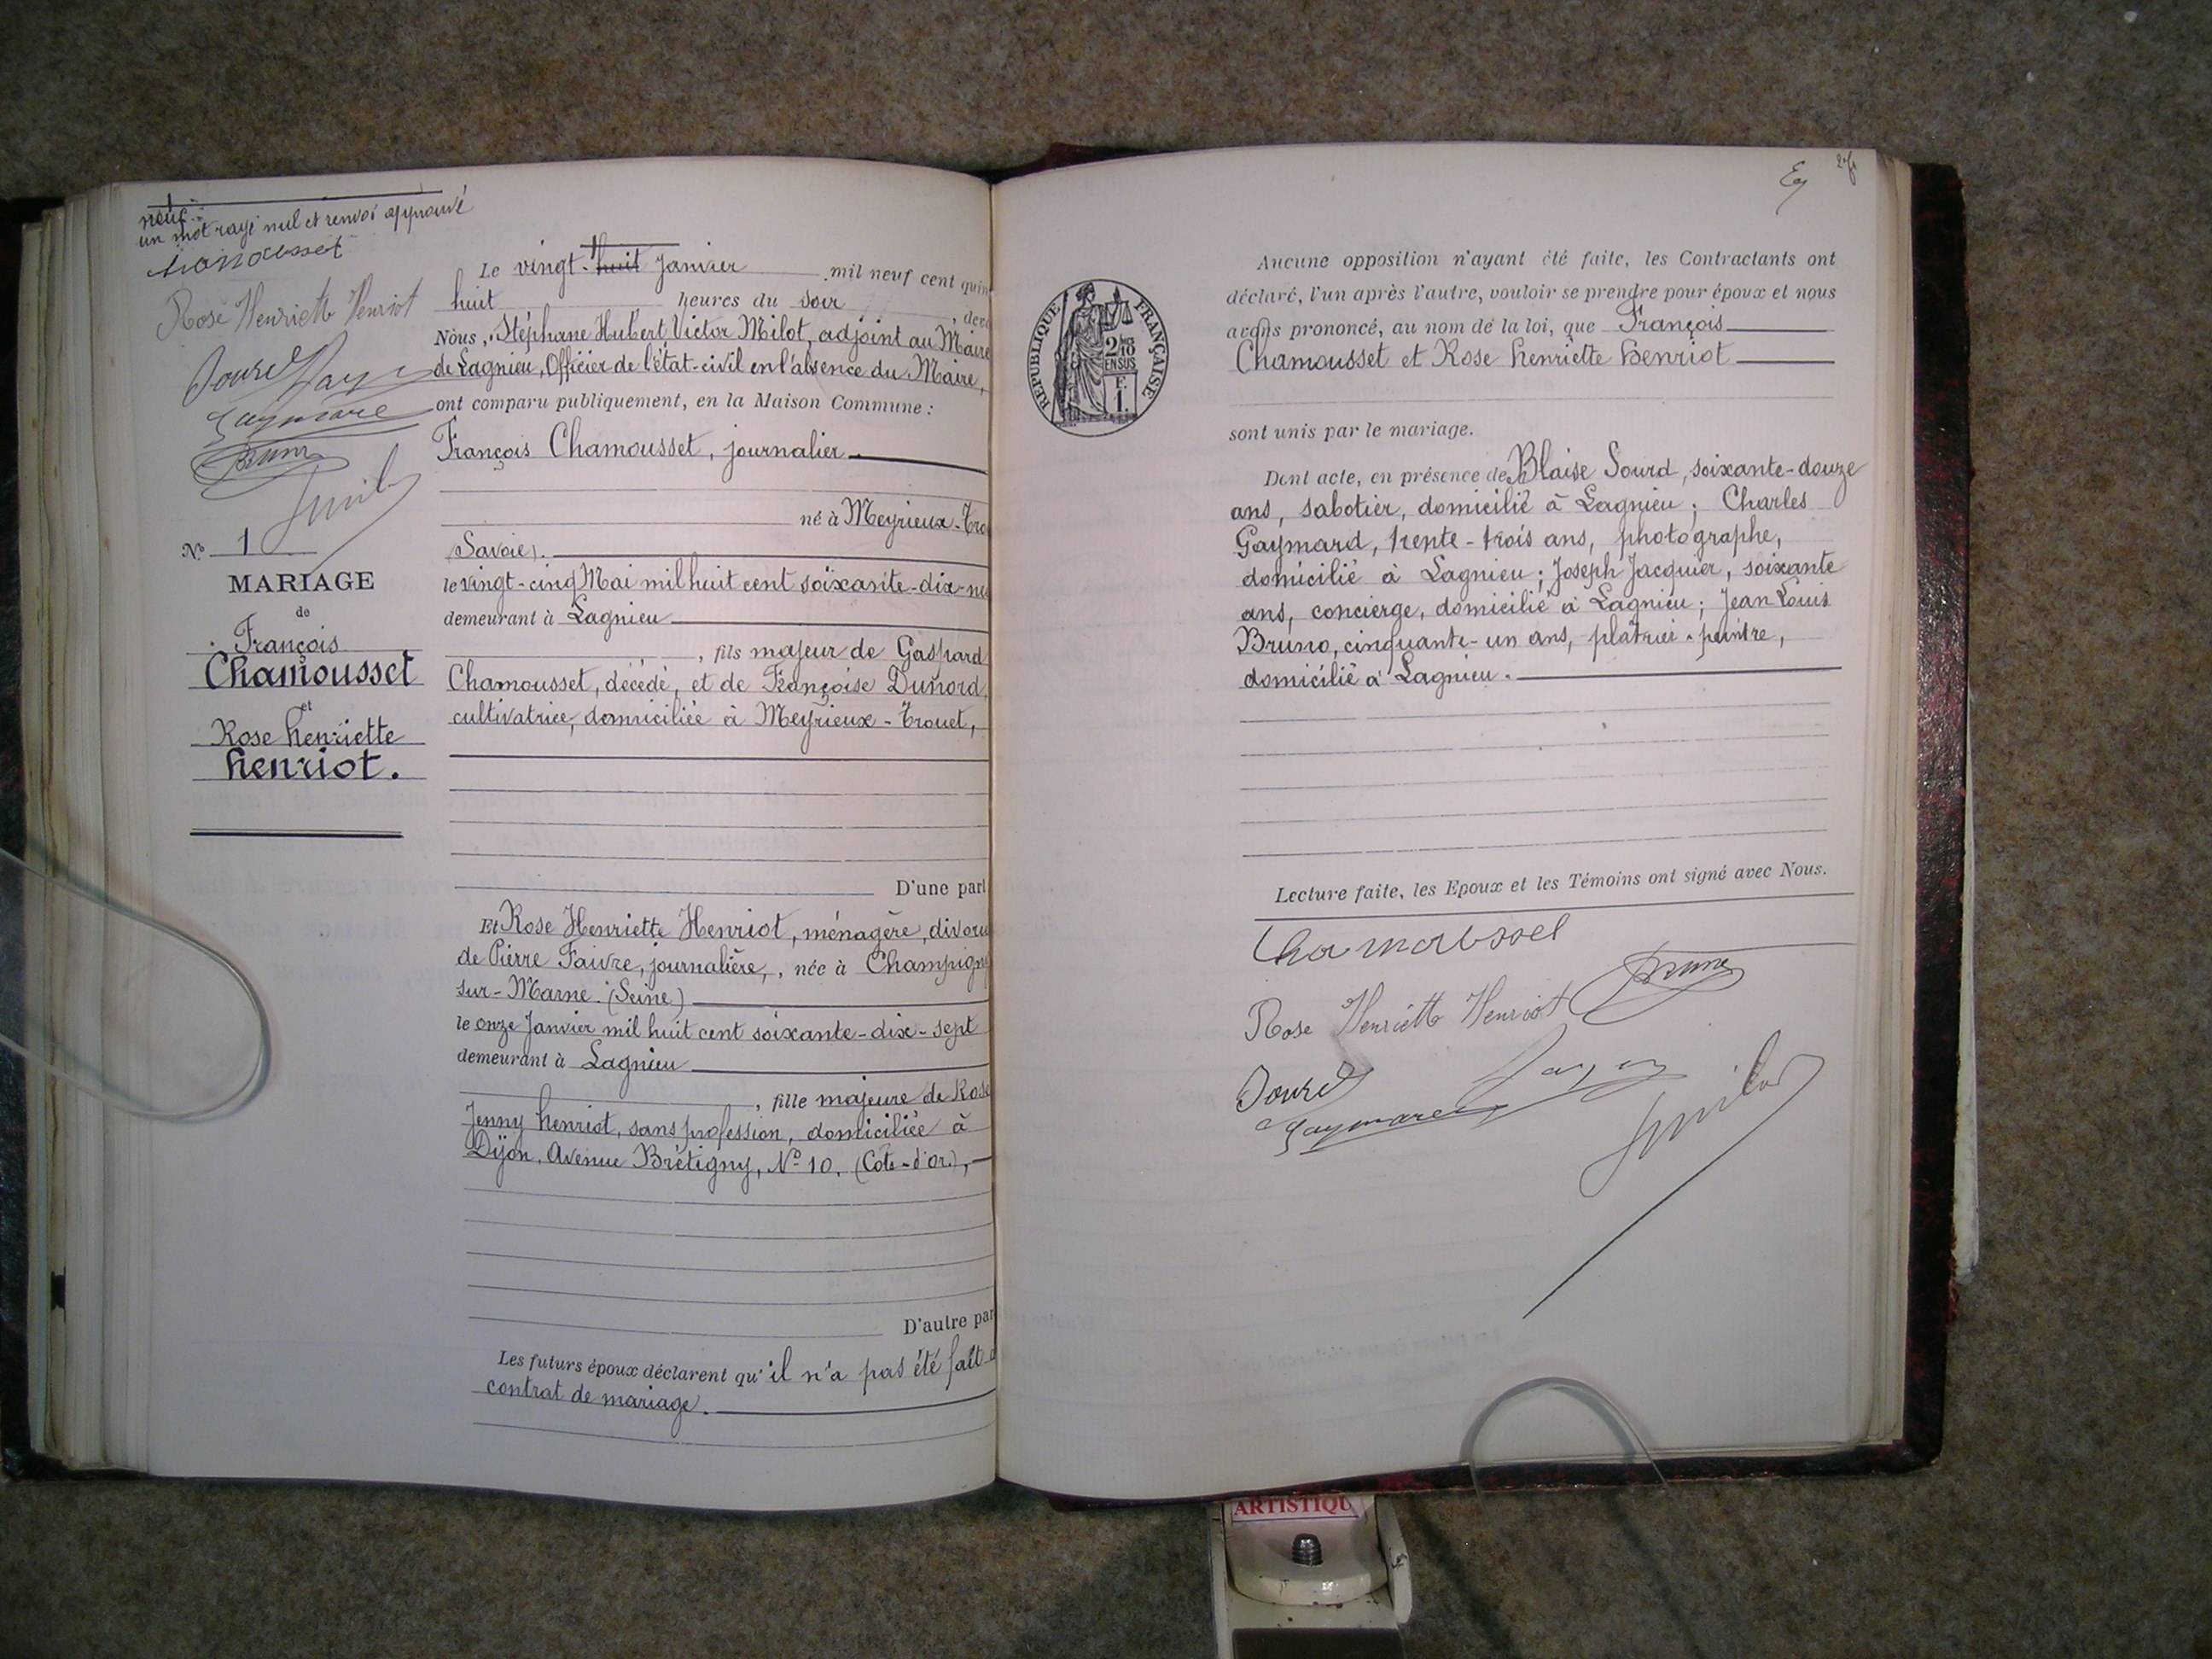 neuf.
un mot rayé nul et renvoi approuvé
Rose Henriette Henriot
Sourd
Gaymard
Bruno
Nº 1
MARIAGE
de
François
Chamousset
et
Rose henriette
henriot.
Le vingt-huit Janvier mil neuf cent quin
huit heures du soir, deva
Nous, Stéphane Hubert Victor Milot, adjoint au Maire
de Lagnieu, Officier de l'état-civil en l'absence du Maire,
ont comparu publiquement, en la Maison Commune :
François Chamousset, journalier
né à Meyrieux-Tro
(Savoie).
le vingt-cinq Mai mil huit cent soixante-dix-neu
demeurant à Lagnieu
, fils majeur de Gaspard
Chamousset, décédé, et de Françoise Dunord,
cultivatrice, domiciliée à Meyrieux-Trouet,
D'une part
Et Rose Henriette Henriot, ménagère, divorc
de Pierre Faivre, journalière, , née à Champigny
sur-Marne. (Seine)
le onze Janvier mil huit cent soixante-dix-sept
demeurant à Lagnieu
, fille majeure de Rose
Jenny henriot, sans profession, domiciliée à
Dijon, Avenue Brétigny, Nº 10, (Cote-d'or),
D'autre par
Les futurs époux déclarent qu'il n'a pas été fait d
contrat de mariage.
Aucune opposition n'ayant été faite, les Contractants ont
déclaré, l'un après l'autre, vouloir se prendre pour époux et nous
avons prononcé, au nom de la loi, que François
Chamousset et Rose henriette henriot
sont unis par le mariage.
Dont acte, en présence de Blaise Sourd, soixante-douze
ans, sabotier, domicilié à Lagnieu ; Charles
Gaymard, trente-trois ans, photographe,
domicilié à Lagnieu ; Joseph Jacquier, soixante
ans, concierge, domicilié à Lagnieu ; Jean Louis
Bruno, cinquante-un ans, plâtrier-peintre,
domicilié à Lagnieu.
Lecture faite, les Epoux et les Témoins ont signé avec Nous.
Chamousset
Bruno
Rose Henriette Henriot
Sourd
Gaymard
RÉPUBLIQUE FRANÇAISE
2/10
EN SUS
F.
1.
ARTISTIQU